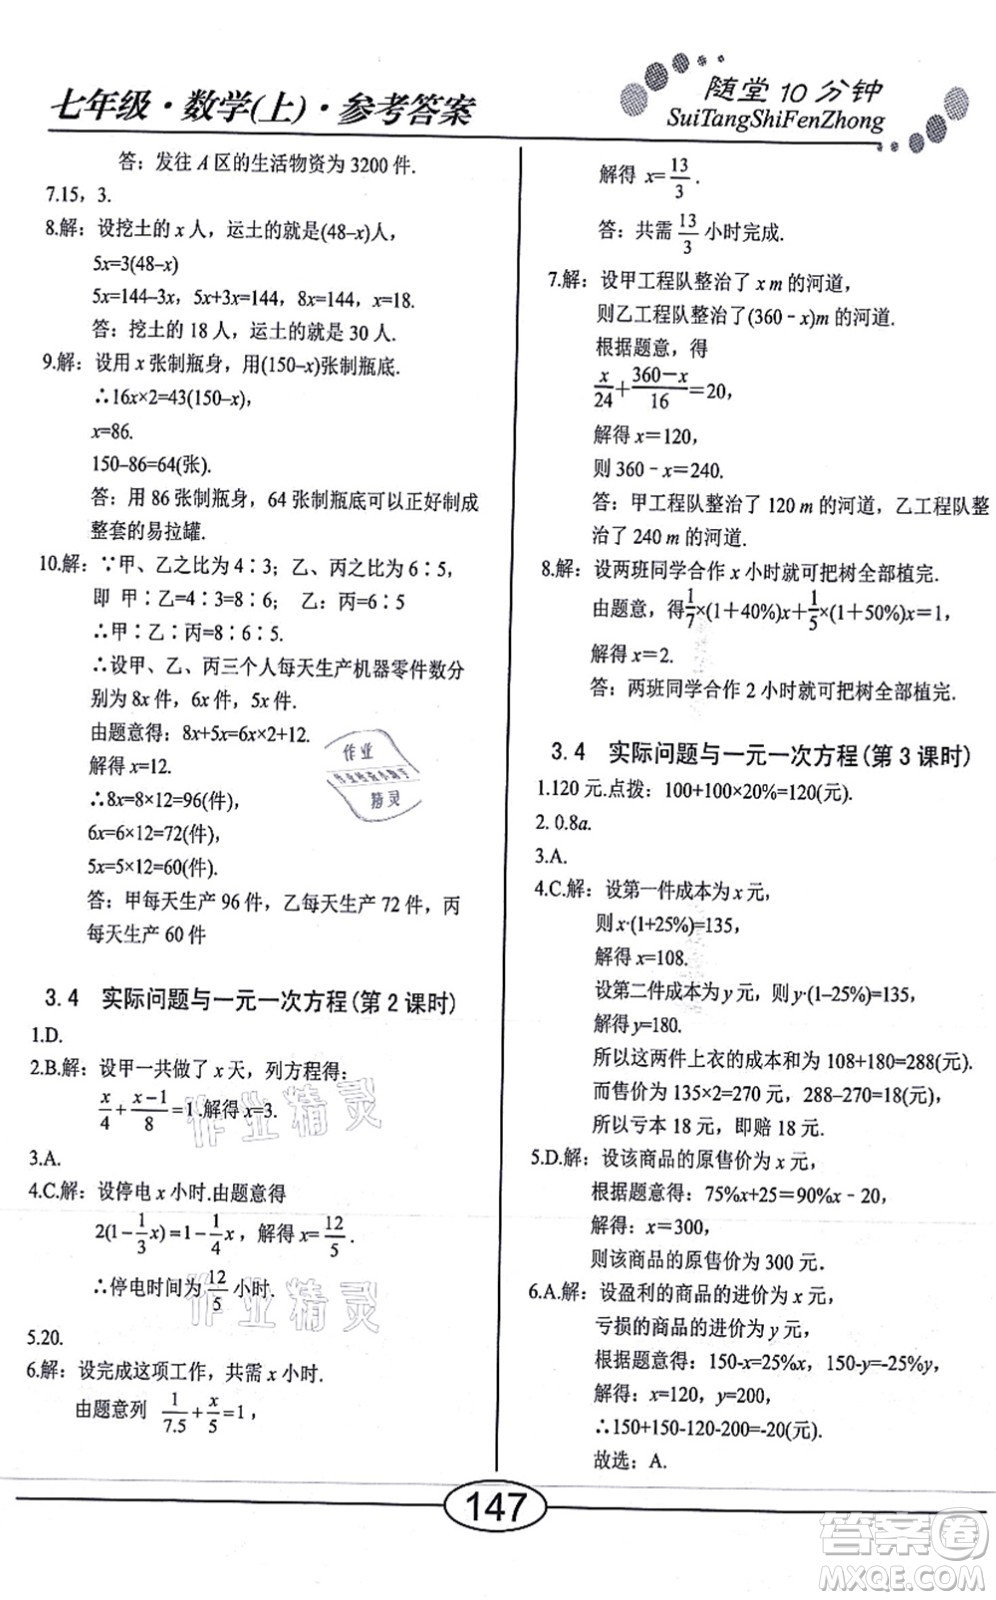 七年级·数学(上)·参考答案
随堂10分钟
SuiTangShiFenZhong
答：发往 A 区的生活物资为 3200 件.
7.15，3.
8.解：设挖土的 x 人，运土的就是(48–x)人，
5x=3(48–x)
5x=144–3x，5x+3x=144，8x=144，x=18.
答：挖土的 18 人，运土的就是 30 人.
9.解：设用 x 张制瓶身，用(150–x)张制瓶底.
∴16x×2=43(150–x)，
x=86.
150–86=64(张).
答：用 86 张制瓶身，64 张制瓶底可以正好制成
整套的易拉罐.
10.解：∵甲、乙之比为 4∶3；乙、丙之比为 6∶5，
即 甲∶乙=4∶3=8∶6； 乙：丙=6∶5
∴甲∶乙∶丙=8∶6∶5.
∴设甲、乙、丙三个人每天生产机器零件数分
别为 8x 件，6x 件，5x 件.
由题意得：8x+5x=6x×2+12.
解得 x=12.
∴8x=8×12=96(件)，
6x=6×12=72(件)，
5x=5×12=60(件).
答：甲每天生产 96 件，乙每天生产 72 件，丙
每天生产 60 件
3.4 实际问题与一元一次方程(第 2 课时)
1.D.
2.B.解：设甲一共做了 x 天，列方程得：
x/4+(x−1)/8=1.解得 x=3.
3.A.
4.C.解：设停电 x 小时.由题意得
2(1−1/3x)=1−1/4x，解得 x=12/5
∴停电时间为12/5 小时.
5.20.
6.解：设完成这项工作，共需 x 小时.
由题意列 1/7.5+x/5=1，
解得 x=13/3.
答：共需 13/3 小时完成.
7.解：设甲工程队整治了 x m 的河道，
则乙工程队整治了(360﹣x)m 的河道.
根据题意，得
x/24+(360−x)/16=20，
解得 x＝120，
则 360﹣x＝240.
答：甲工程队整治了 120 m 的河道，乙工程队整
治了 240 m 的河道.
8.解：设两班同学合作 x 小时就可把树全部植完.
由题意，得1/7×(1＋40%)x＋1/5×(1＋50%)x＝1，
解得 x＝2.
答：两班同学合作 2 小时就可把树全部植完.
3.4 实际问题与一元一次方程(第 3 课时)
1.120 元.点拨：100+100×20%=120(元).
2. 0.8a.
3.A.
4.C.解：设第一件成本为 x 元，
则 x·(1+25%)=135，
解得 x=108.
设第二件成本为 y 元，则 y·(1–25%)=135，
解得 y=180.
所以这两件上衣的成本和为 108+180=288(元).
而售价为 135×2=270 元，288–270=18(元)，
所以亏本 18 元，即赔 18 元.
5.D.解：设该商品的原售价为 x 元，
根据题意得：75%x+25＝90%x﹣20，
解得：x＝300，
则该商品的原售价为 300 元.
6.A.解：设盈利的商品的进价为 x 元，
亏损的商品的进价为 y 元，
根据题意得：150-x=25%x，150-y=-25%y，
解得：x=120，y=200，
∴150+150-120-200=-20(元).
故选：A.
147
作业
精灵
作业精灵
作业精灵
答案卷
MXQE.COM